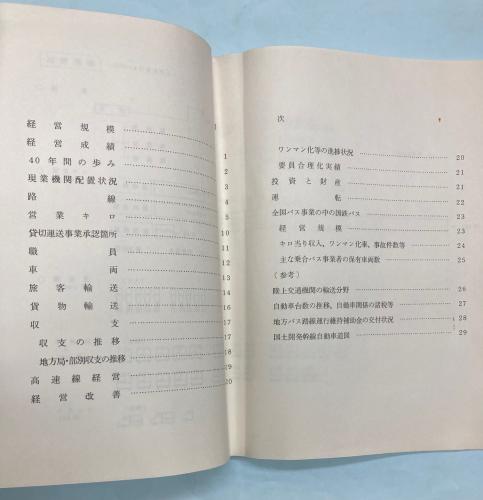 経営規模
経営成績 1
40年間の歩み
現業機関配置状況
路線
営業キロ
貸切運送事業承認箇所
職員
車両
旅客輸送
貨物輸送
収支 17
収支の推移 17
地方局・部別収支の推移 18
高速線経営 19
経営改善 20
次
ワンマン化等の進捗状況 20
要員合理化実績 21
投資と財産 21
運転 22
全国バス事業の中の国鉄バス 23
経営規模 23
キロ当り収入、ワンマン化率、事故件数等 24
主な乗合バス事業者の保有車両数 25
(参考)
陸上交通機関の輸送分野 26
自動車台数の推移、自動車関係の諸税等 27
地方バス路線運行維持補助金の交付状況 28
国土開発幹線自動車道図 29